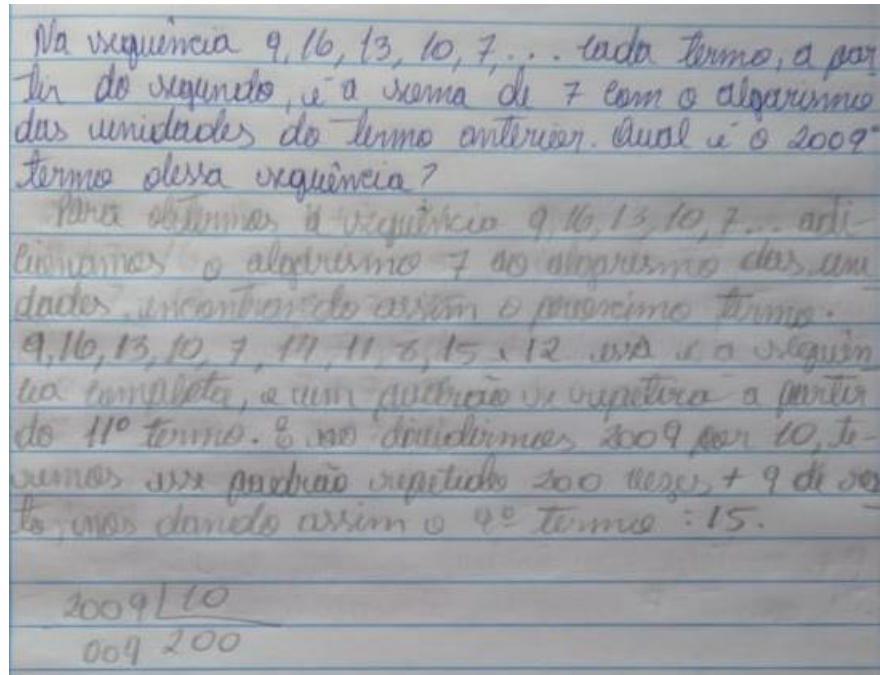 Na sequência 9, 16, 13, 10, 7, ... cada termo, a par
tir do segundo, é a soma de 7 com o algarismo
das unidades do termo anterior. Qual é o 2009º
termo dessa sequência?
Para obtermos a sequência 9, 16, 13, 10, 7... adi-
cionamos o algarismo 7 ao algarismo das uni
dades, encontrando assim o próximo termo.
9, 16, 13, 10, 7, 14, 11, 8, 15, 12 essa é a sequên
cia completa, e um padrão se repetira a partir
do 11º termo. E ao dividirmos 2009 por 10, te-
remos esse padrão repetido 200 vezes + 9 de res
to, nos dando assim o 9º termo : 15.
2009 | 10
009 200